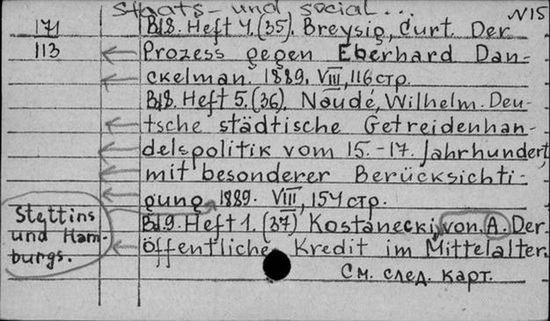 Staats- und social... N15
171 Bd8. Heft 4. (35). Breysig, Curt. Der
113 Prozess gegen Eberhard Dan-
ckelman. 1889. VIII, 116 стр.
Bd8. Heft 5. (36). Naudé, Wilhelm. Deu-
tsche städtische Getreidenhan-
delspolitik vom 15.-17. Jahrhundert
mit besonderer Berücksichti-
gung 1889. VIII, 154 стр.
Stettins
und Ham-
burgs.
Bd9. Heft 1. (37) Kostanecki, von. A. Der
öffentliche Kredit im Mittelalter.
См. след. карт.